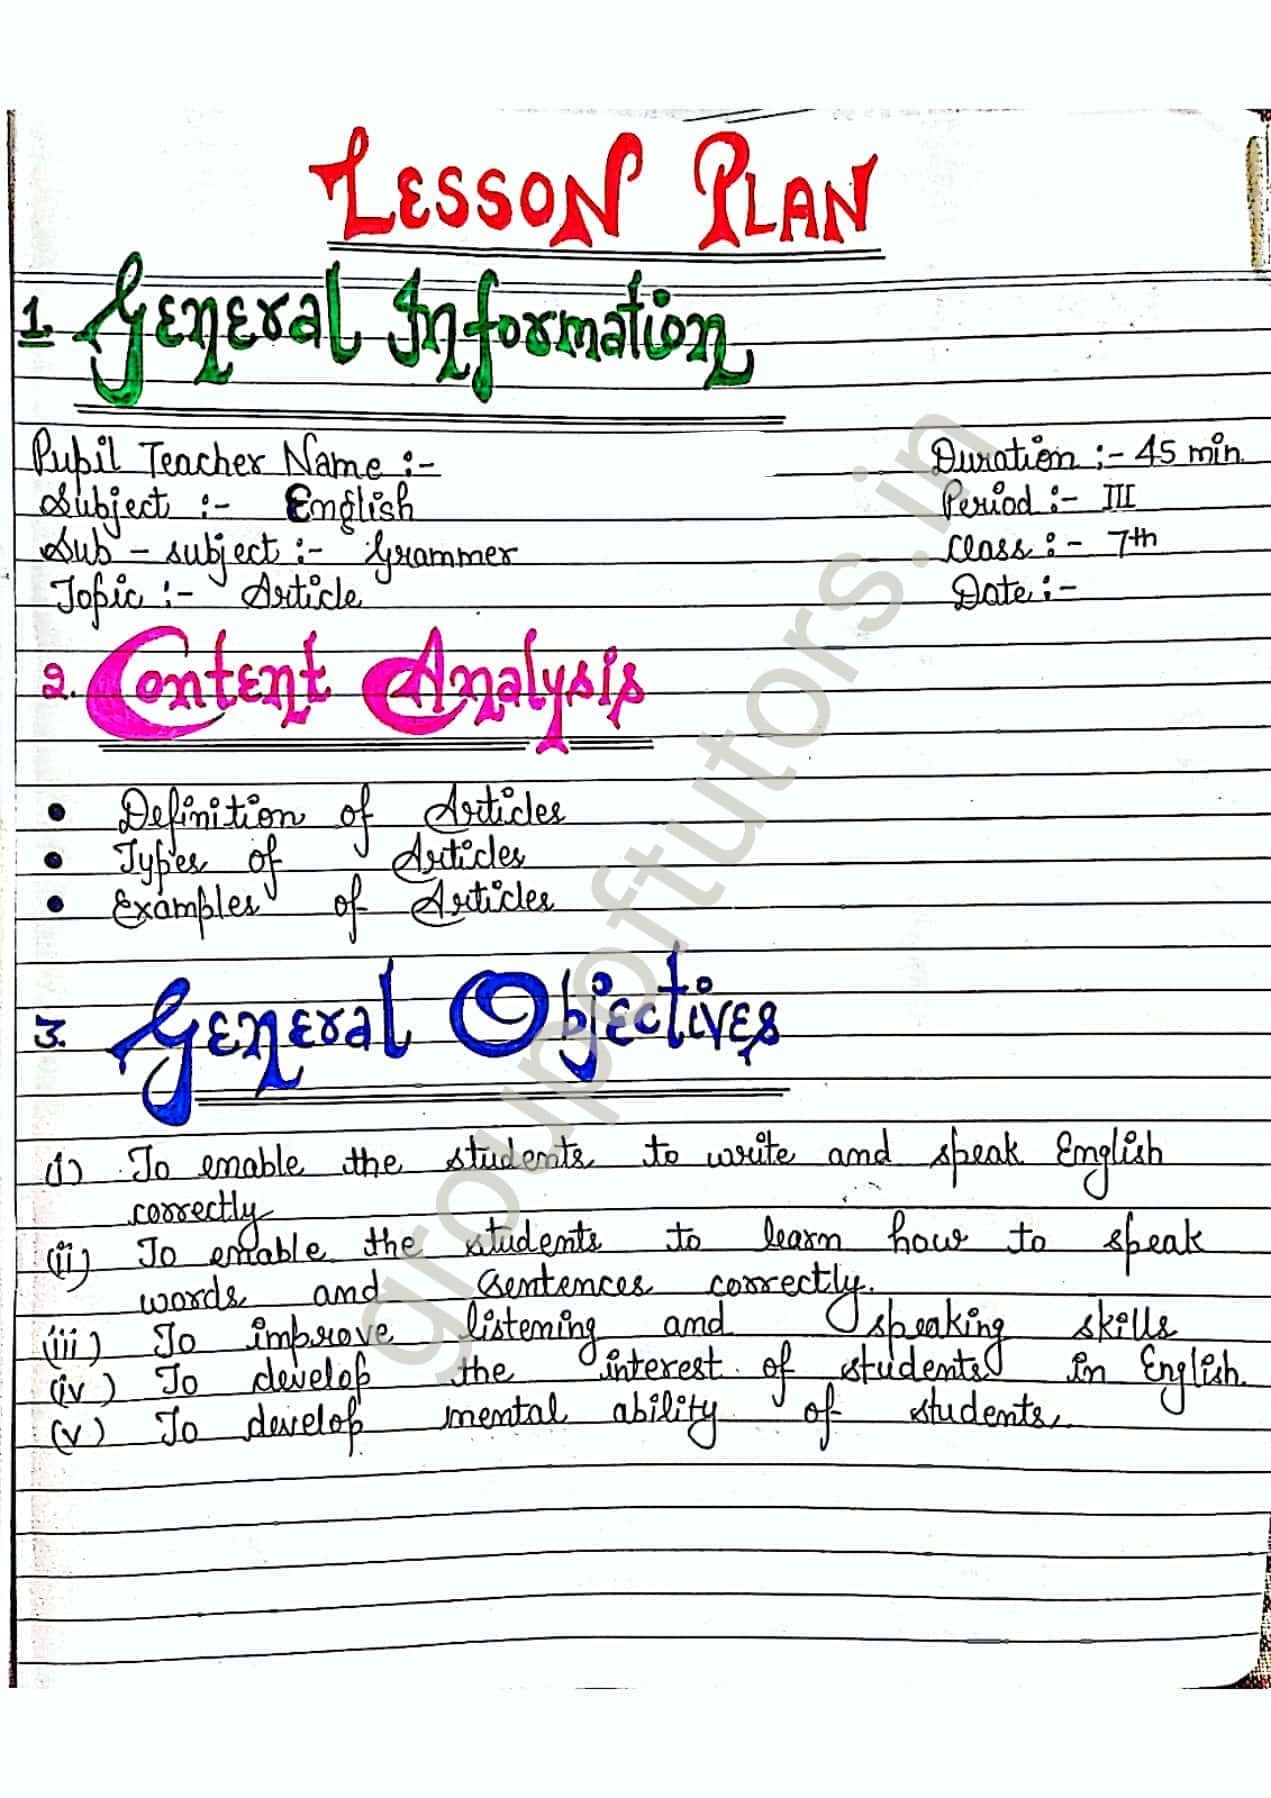 LESSON PLAN
1. General Information
Pupil Teacher Name :- Duration :- 45 min.
Subject :- English Period :- III
Sub - subject :- Grammer Class :- 7th
Topic :- Article Date :-
2. Content Analysis
• Definition of Articles
• Types of Articles
• Examples of Articles
3. General Objectives
(i) To enable the students to write and speak English
correctly
(ii) To enable the students to learn how to speak
words and sentences correctly.
(iii) To improve listening and speaking skills
(iv) To develop the interest of students in English.
(v) To develop mental ability of students.
groupoftutors.in